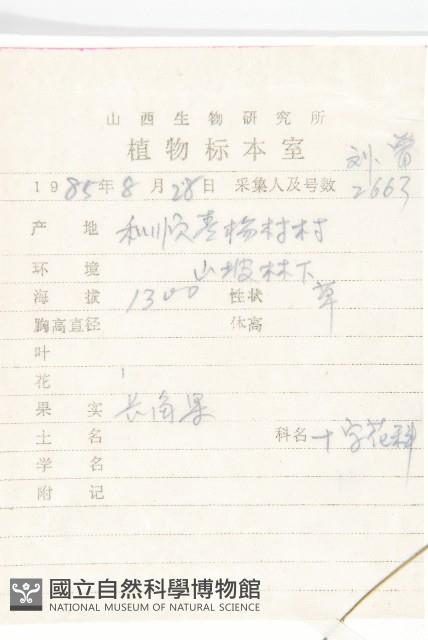 山西生物研究所
植物标本室
刘、
1985年8月28日 采集人及号数 2663
产地 和顺青杨树村
环境 山坡林下
海拔 1300 性状 草
胸高直径 体高
叶
花
果实 长角果
土名 科名 十字花科
学名
附记
國立自然科學博物館
NATIONAL MUSEUM OF NATURAL SCIENCE